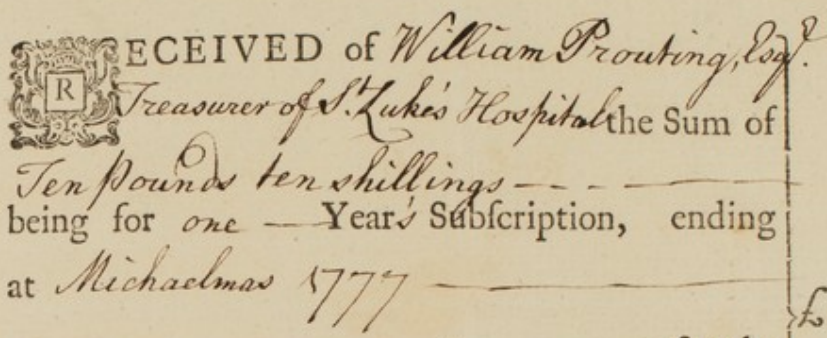 RECEIVED of William Prouting, Esqr.
Treasurer of St. Luke's Hospital the Sum of
Ten Pounds ten shillings
being for one Year's Subſcription, ending
at Michaelmas 1777
£